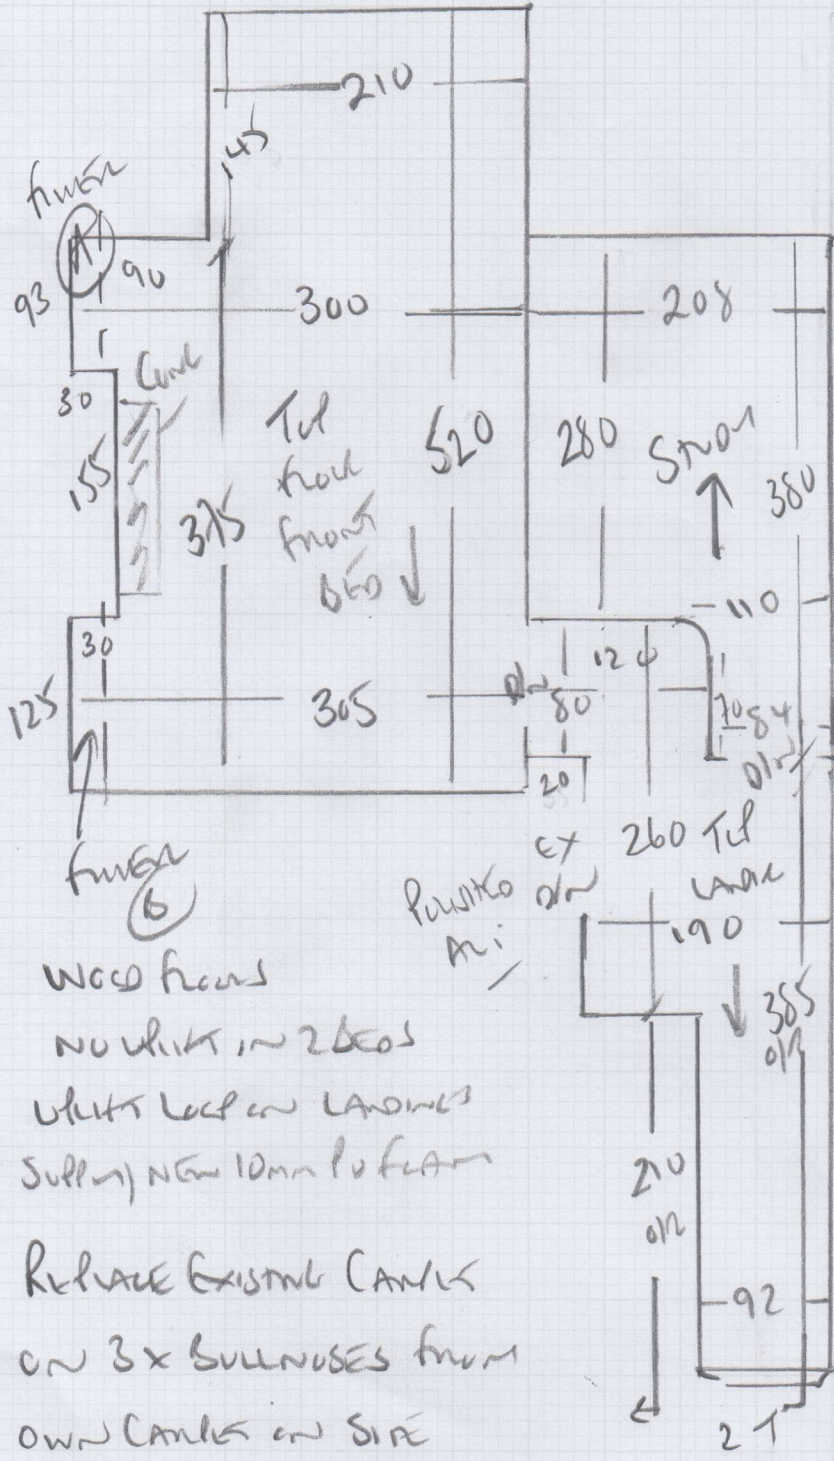 210
145
FILLER
A
93
90
300
208
30
155
375
TOP
FLOOR
FRONT
BED
520
280
STUDY
380
110
30
125
305
D/W
80
120
70
84
D/W
20
EX
D/W
260
TOP
LANDING
FILLER
B
190
385
O/R
WOOD FLOORS
NO UPLIFT IN 2 BEDS
UPLIFT LOOP ON LANDINGS
SUPPLY NEW 10mm PU FOAM
210
O/R
92
REPLACE EXISTING CARPET
ON 3 X BULLNOSES FROM
OWN CARPET ON SITE
2 T